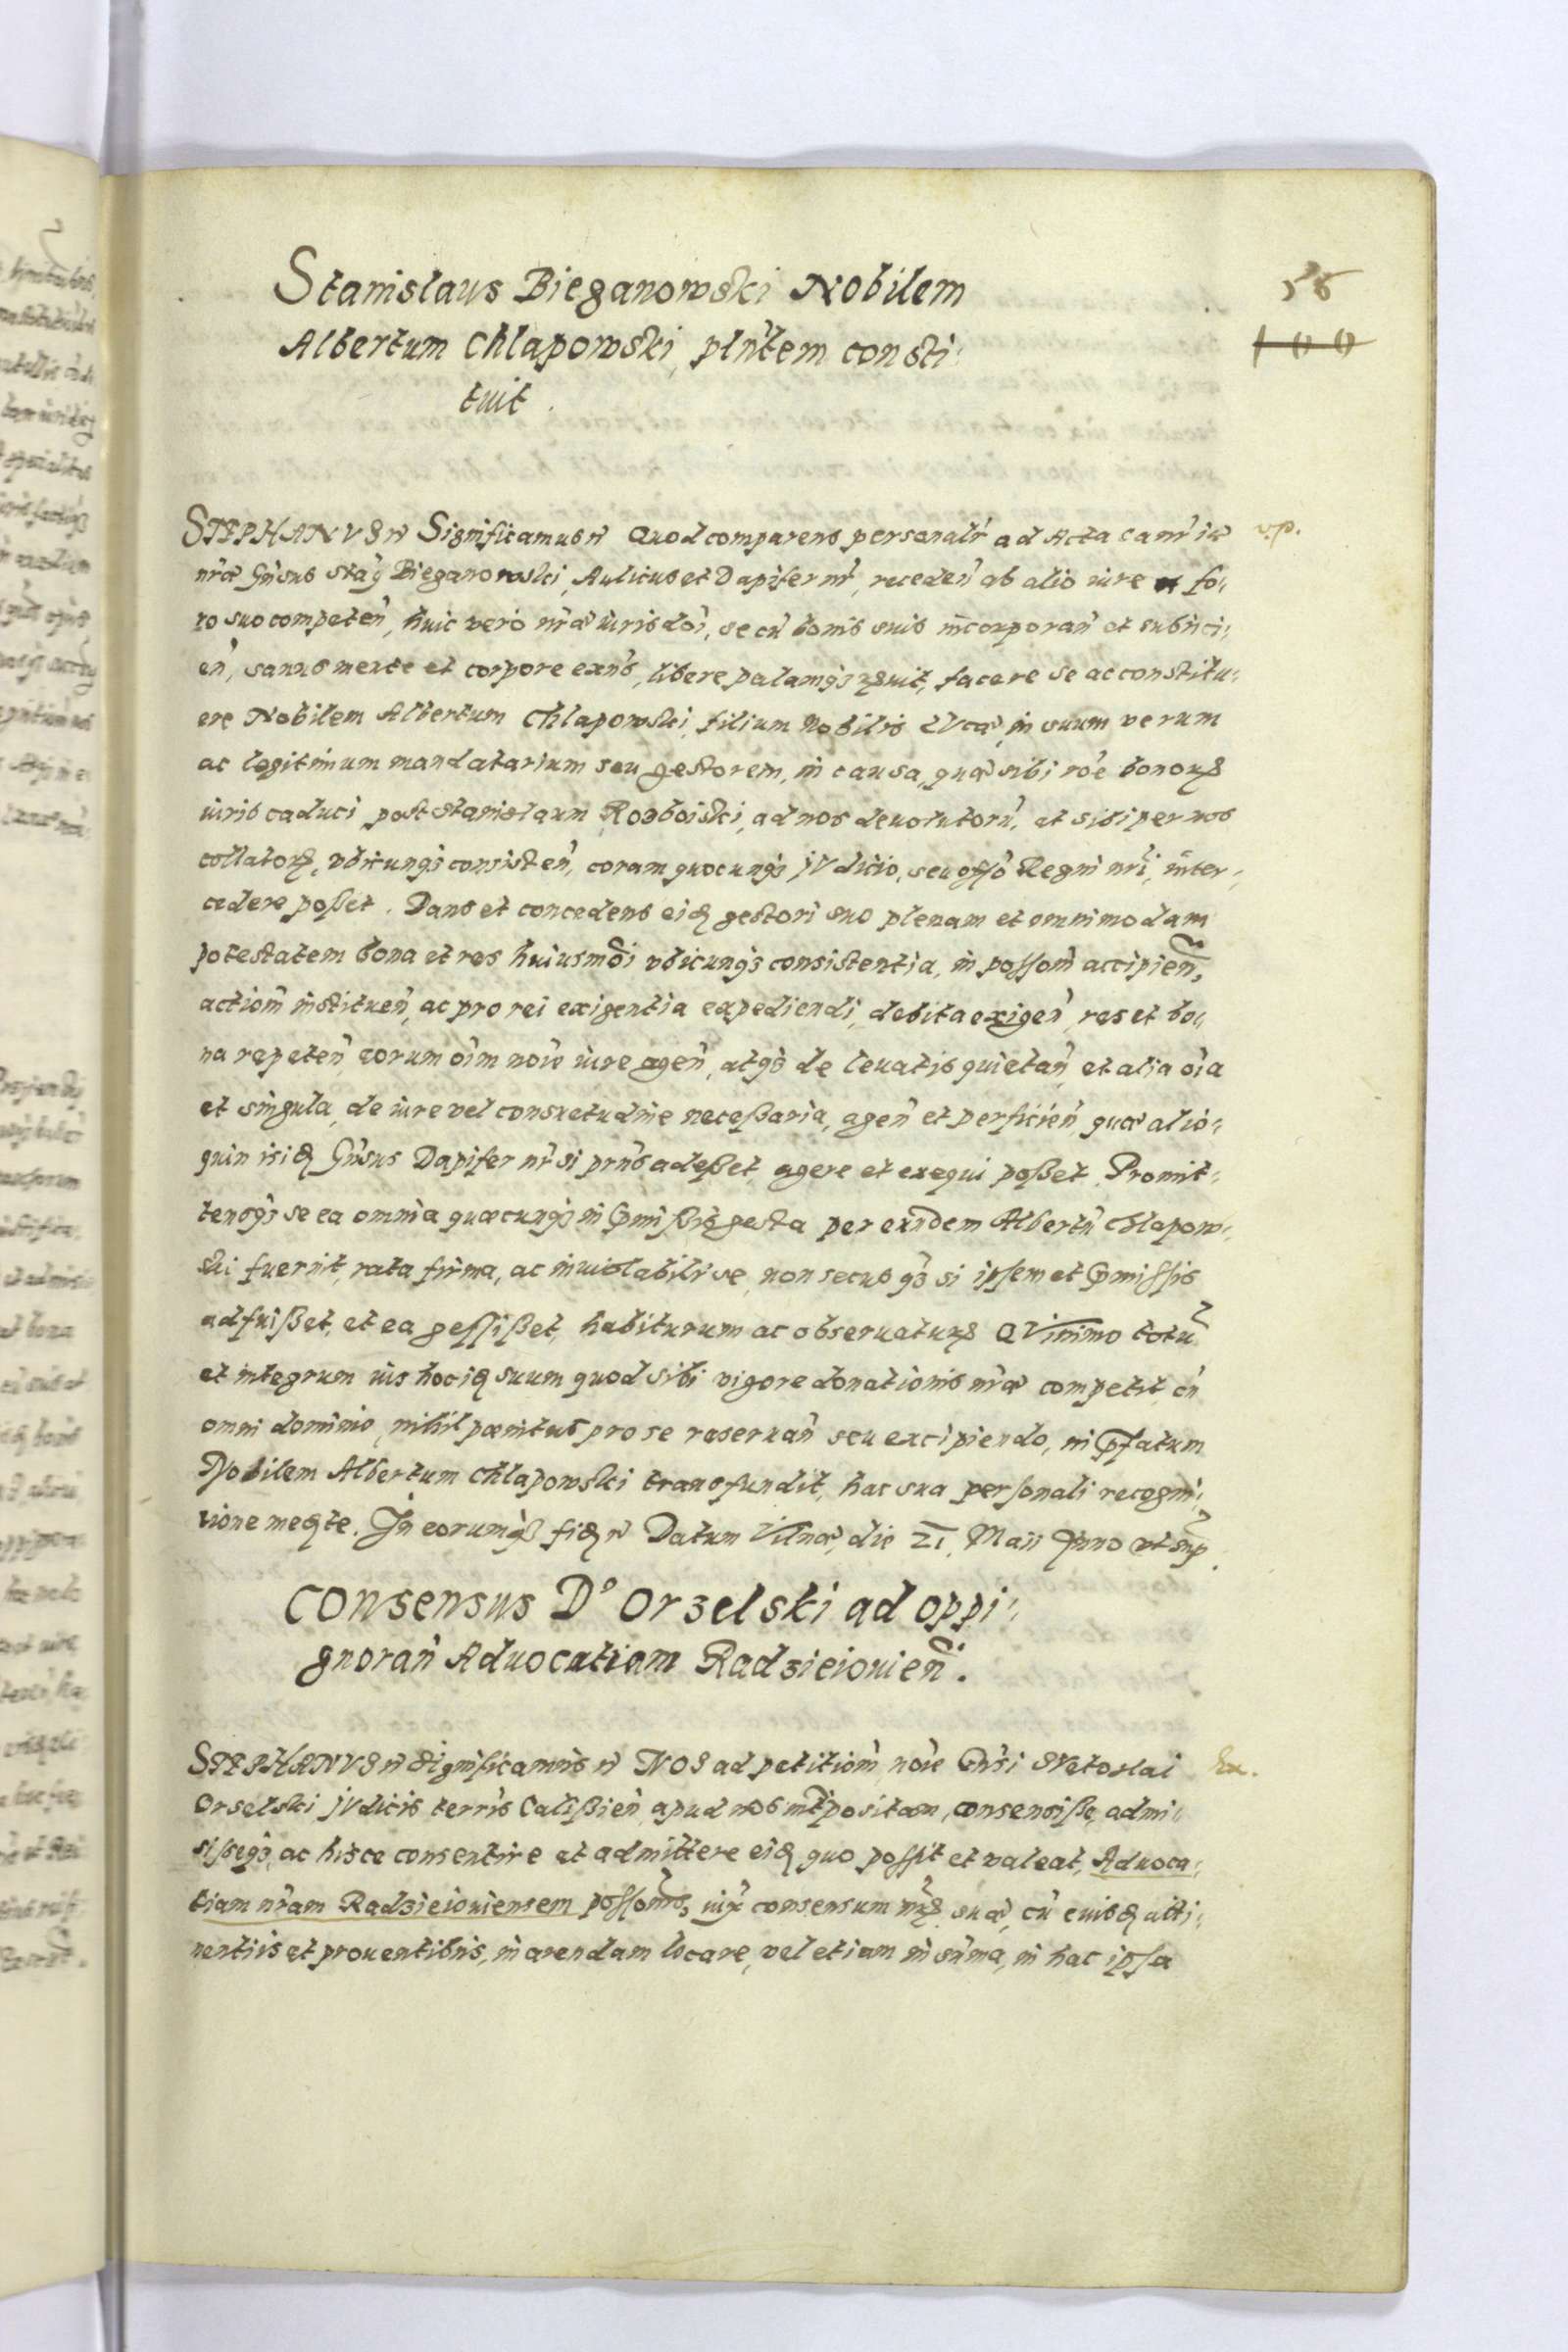 Stanislaus Bieganowski Nobilem
Albertum Chlapowski, plñtem consti:
tuit.
56
100
STEPHANVS etc Significamus etc Quod comparens personalr̃ ad Acta canr̃iæ
v.p.
nr̃æ Gñsus Sta͠s Bieganowski, Aulicus et Dapifer nr̃, receden̄ ab alio iure et fo:
ro suo competen̄, huic vero nr̃æ iurisdoi, se cũ bonis suis incorporan̄ et subiici:
en̄, sanus mente et corpore exñs, libere palamq3 r̃uit, facere se ac constitu:
ere Nobilem Albertum Chlapowski, filium Nobilis LVcæ, in suum verum
ac legitimum mandatarium seu gestorem, in causa, quæ sibi rõe bonorꝝ
iuris caduci post Stanislaum, ad nos deuolutorũ, et sibi per nos
collatorꝝ, vbicunq3 consisten̄, coram quocunq3 jVdicio, seu offõ Regni nr̃i, inter:
cedere poßet. Dans et concedens eid gestori suo plenam et omnimodam
potestatem bona et res huiusmõi vbicunq3 consistentia, in possoñ accipien̄,
actioñ instituen̄, ac pro rei exigentia expediendi, debita exigen̄, res et bo:
na repeten̄ eorum oı̃m noı̃e iure agen̄, atq3 de leuatis quietan̄, et alia oı̃a
et singula, de iure vel consuetudine neceßaria, agen̄ et perficien̄, quæ alio:
quin isid Gñsus Dapifer nr̃ si prñs adeßet, agere et exequi poßet. Promit:
tensq3 se ea omnia quæcunq3 in p̃mißis gesta per eundem Albertũ Chlapow:
ski fuerint, rata firma, ac inuiolabilive, non secus q3 si ipsemet p̃missis
adfuißet, et ea gessißet, habiturum ac obseruaturꝝ QVinimo totũ
et integrum ius hocid suum quod sibi vigore donationis nr̃æ competit, cũ
omni dominio, nihil pœnitus pro se reseruan̄ seu excipiendo, in p̃fatum
Nobilem Albertum Chlapowski transfundit, hac sua personali recogni:
tione medte. In eorumq3 fid etc Datum Vilnæ, die 21. Maii Anno vt sup̃.
Consensus D° Orzelski ad oppi:
gnoran̄ Aduocatiam Radzieiouien̄.
STEPHANVS etc Significamus etc NOS ad petitioñ noı̃e Gñsi SVetoslai
Ex.
Orselski jVdicis terris Calißien̄, apud nos int̃positam, consensiße, admi:
sißeq3, ac hisce consentire et admittere eid quo possit et valeat, Aduoca:
tiam nr̃am Radzieiouiensem possoñis, iux̃ consensum suæ, cũ euisd atti:
nentiis et prouentibus, in arendam locare, vel etiam in sum̃a, in hac ipsa